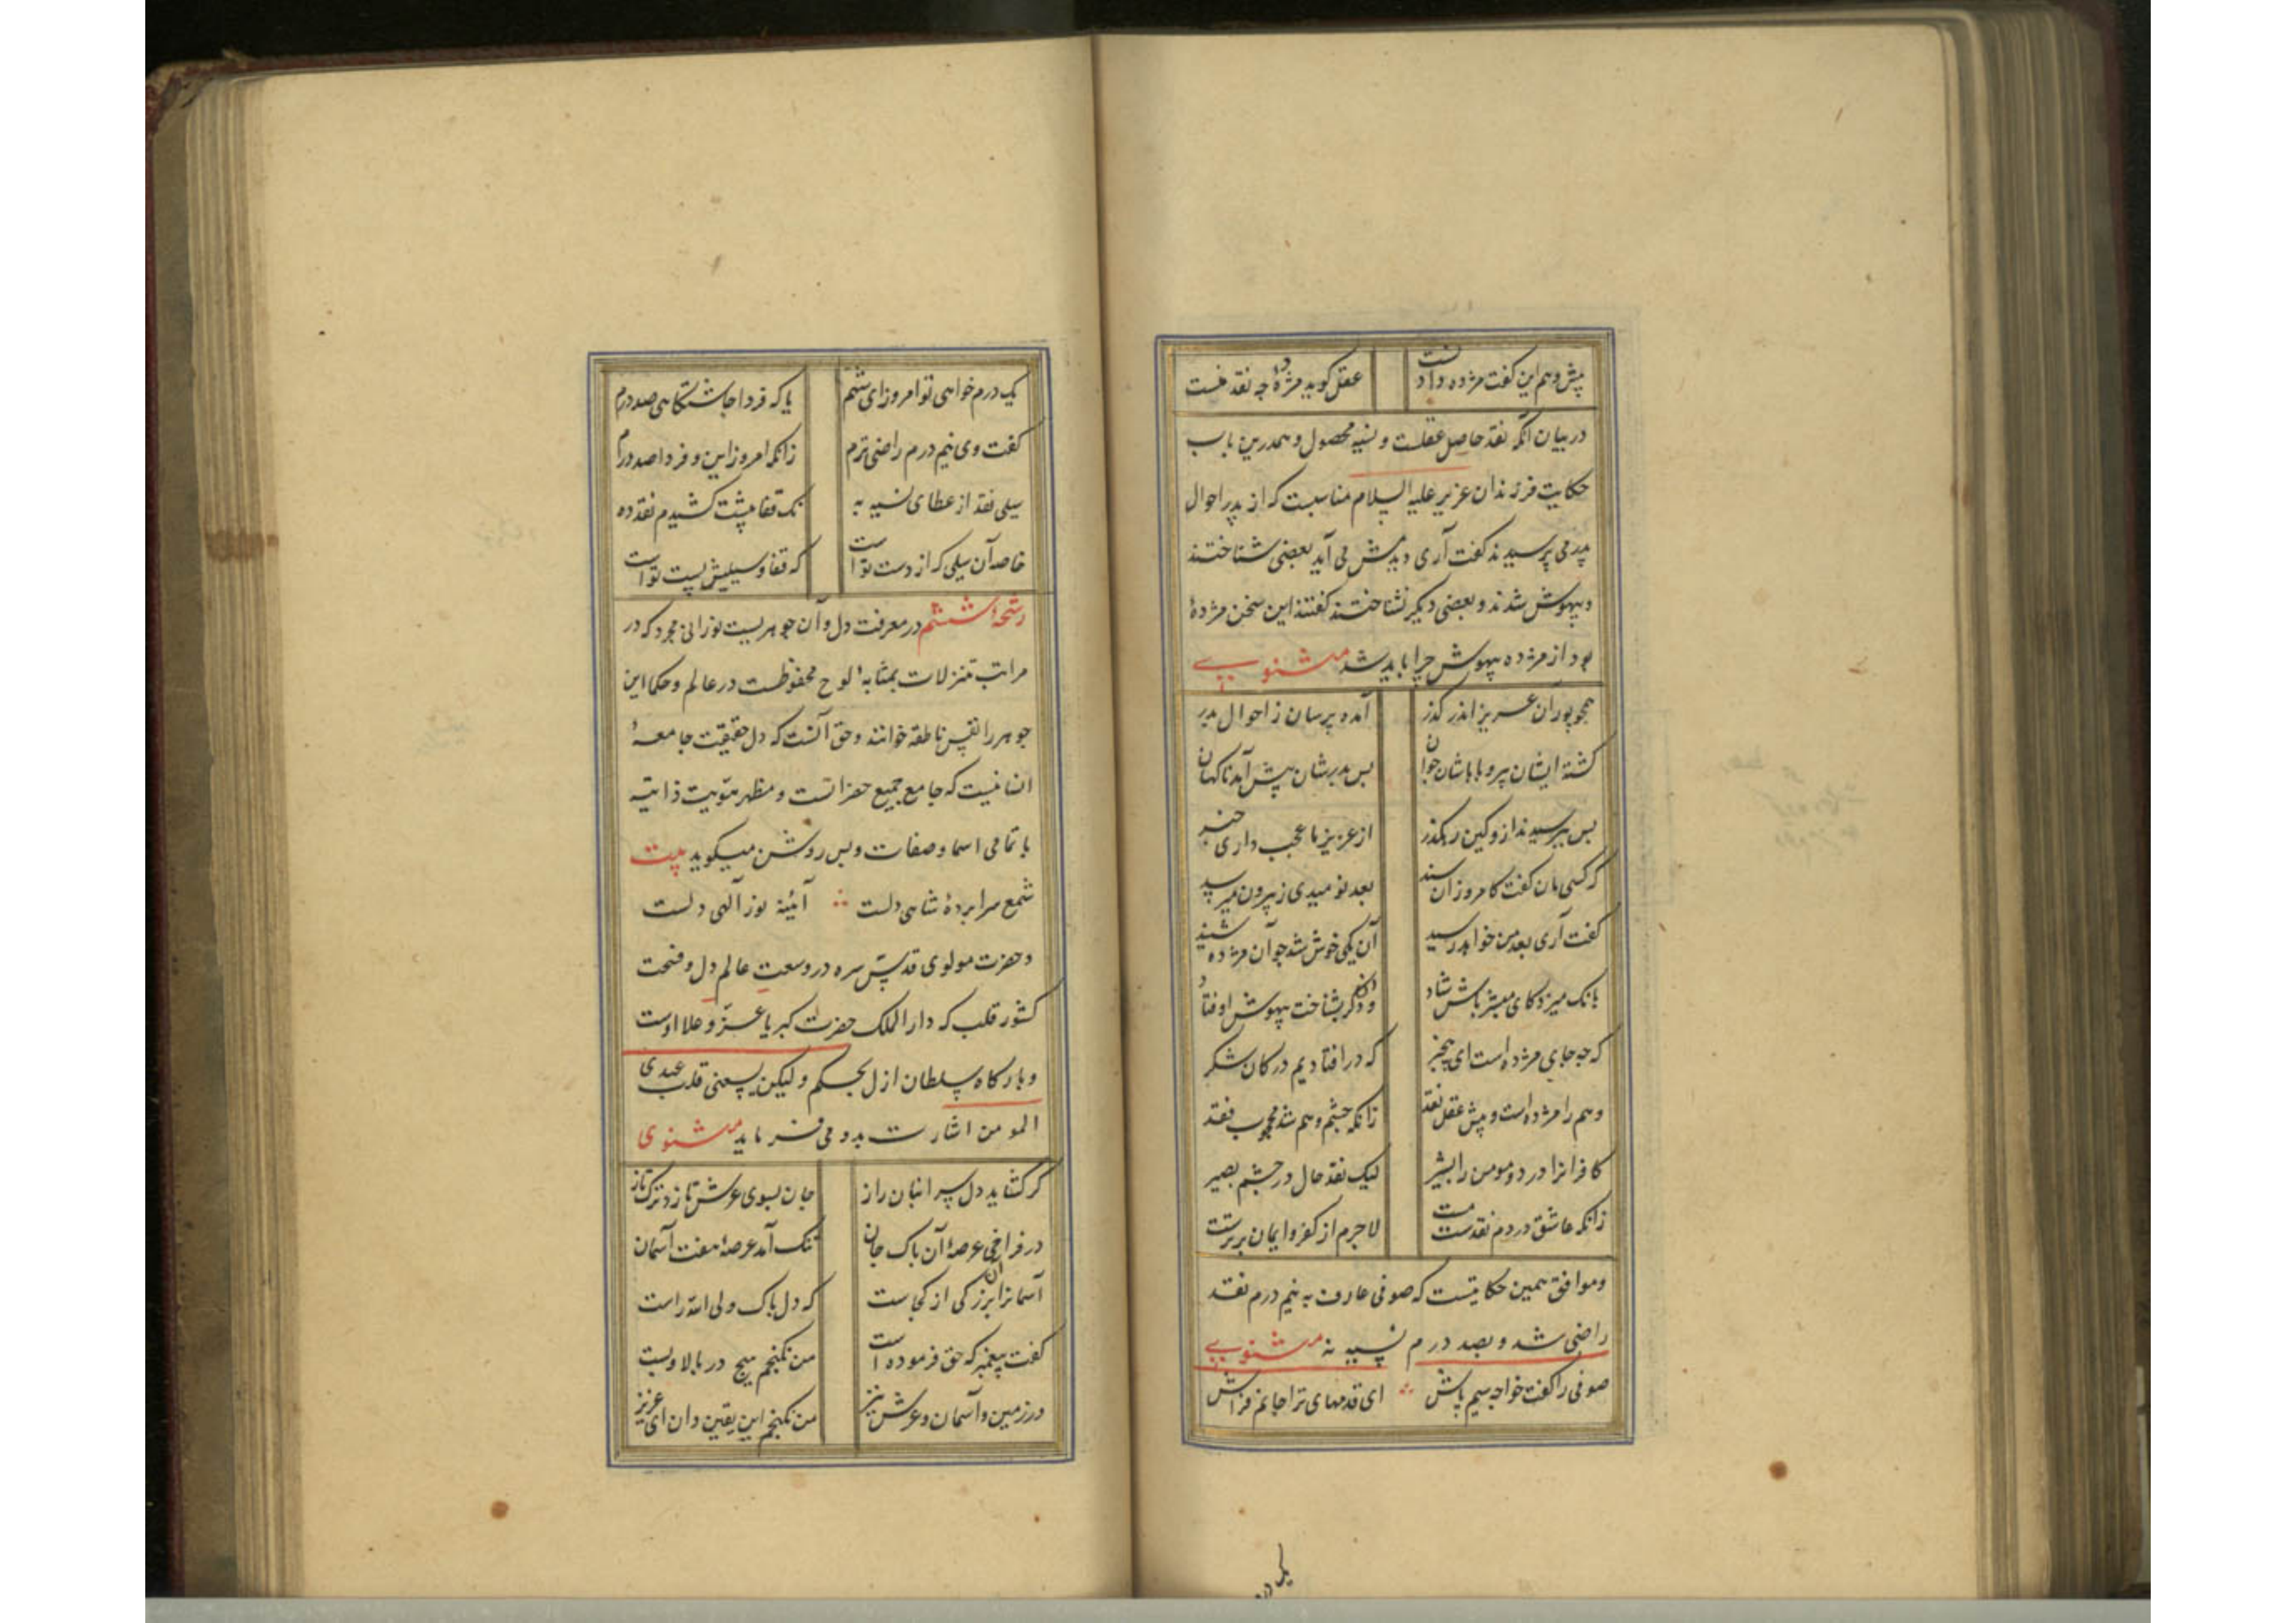 پیش وهم این گفت مژده دادنست عقل گوید مژدهٔ چه نقد منست
در بیان آنکه نقد حاصل عقلست و نسیه محصول و همدرین باب
حکایت فرزندان عزیر علیه السلام مناسبت که از پدر احوال
پدر می پرسیدند گفت آری دیدمش می آید بعضی شناختند
و بیهوش شدند و بعضی دیگر نشناختند گفتند این سخن مژدهٔ
بود از مژده بیهوش چرا باید شد مثنوی
همچو پوران عزیر اندر گذر آمده پرسان ز احوال پدر
گشته ایشان پیر و باباشان جوان پس پدرشان پیش آمد ناگهان
پس بپرسیدند ازو کین رهگذر از عزیر ما عجب داری خبر
که کسی مان گفت کامروز آن سند بعد نومیدی ز بیرون میرسد
گفت آری بعد من خواهد رسید آن یکی خوش شد چو آن مژده شنید
بانک میزد کای مبشر باش شاد وان دگر بشناخت بیهوش اوفتاد
که چه جای مژده است ای بیخبر که در افتادیم در کان شکر
وهم را مژده است و پیش عقل نقد زانکه چشم وهم شد محجوب فقد
کافرانرا درد و مومن را بشیر لیک نقد حال در چشم بصیر
زانکه عاشق در دم نقدست مست لاجرم از کفر و ایمان برترست
و موافق همین حکایتست که صوفی عارف به نیم درم نقد
راضی شد و بصد درم نسیه نه مثنوی
صوفی را گفت خواجه سیم پاش ای قدمهای ترا جانم فراش
یک درم خواهی تو امروز ای شهم یا که فردا چاشتگاهی صد درم
گفت وی نیم درم راضی ترم زانکه امروز این و فردا صد درم
سیلی نقد از عطای نسیه به نک قفا پیشت کشیدم نقد ده
خاصه آن سیلی که از دست تو است که قفا و سیلیش پست تو است
رشحهٔ ششم در معرفت دل و آن جوهریست نورانی مجرد که در
مراتب تنزلات بمثابهٔ لوح محفوظست در عالم و حکما این
جوهر را نفس ناطقه خوانند و حق آنست که دل حقیقت جامعهٔ
انسانیست که جامع جمیع حضراتست و مظهر هویت ذاتیه
با تمامی اسما و صفات و بس روشن میگوید بیت
شمع سراپردهٔ شاهی دلست آئینه نور آلهی دلست
و حضرت مولوی قدس سره در وسعت عالم دل و فسحت
کشور قلب که دار الملک حضرت کبریا عز و علا اوست
و بارگاه سلطان ازل بحکم و لیکن یسعنی قلب عبدی
المومن اشارت بدو می فرماید مثنوی
گر گشاید دل سر انبان راز جان بسوی عرش تازد ترکتاز
در فراخی عرصهٔ آن پاک جان تنک آمد عرصهٔ هفت آسمان
آسمانرا آن بزرگی از کجاست که دل پاک ولی الله راست
گفت پیغمبر که حق فرموده است من نگنجم هیچ در بالا و پست
در زمین و آسمان و عرش نیز من نگنجم این یقین دان ای عزیز